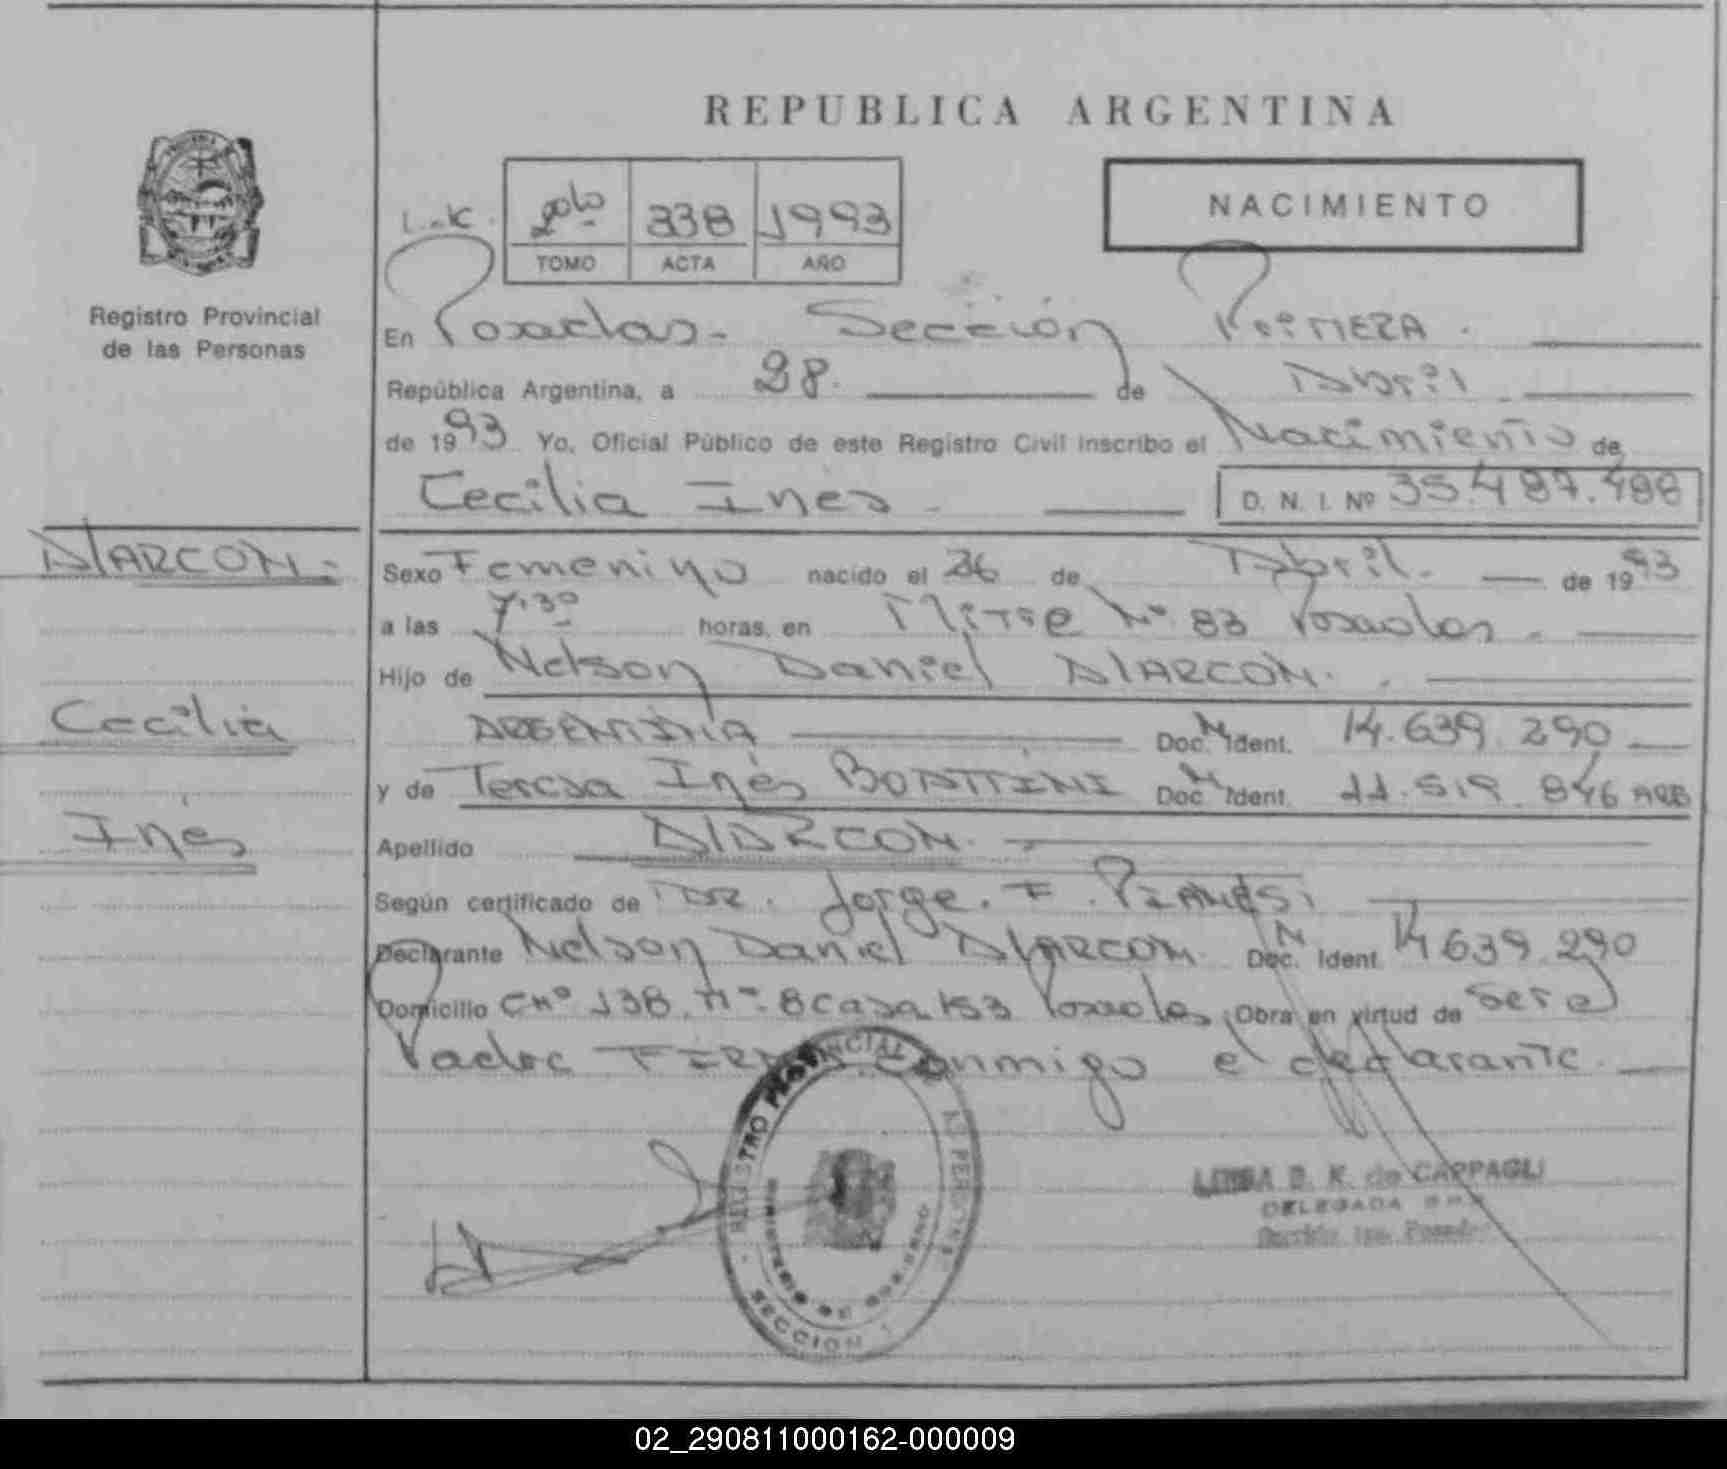 REPUBLICA ARGENTINA
NACIMIENTO
L.K. 2do 338 1993
TOMO ACTA AÑO
Registro Provincial
de las Personas
En Posadas - Sección Primera.
República Argentina, a 28 de Abril
de 1993 Yo, Oficial Público de este Registro Civil inscribo el Nacimiento de
Cecilia Ines - D. N. I. Nº 35.487.488
AlARCON.-
Sexo Femenino nacido el 26 de Abril. de 1993
a las 7,30 horas, en Mitre Nº 83 Posadas.
Hijo de Nelson Daniel AlARCON.
Cecilia
ARGENTINA Doc. N Ident. 14.639.290
y de Teresa Inés BONTTINI Doc. N Ident. 11.519.846 ARG
Inés
Apellido AlARCON.
Según certificado de DR. Jorge. F. PIANESI
Declarante Nelson Daniel AlARCON. Doc. N Ident. 14.639.290
Domicilio CHº 138. Mº 8 casa 153 Posadas, Obra en virtud de ser el
Padre FIRMA conmigo el declarante.
REGISTRO PROVINCIAL DE LAS PERSONAS
MINISTERIO DE GOBIERNO
SECCION 1
LUISA B. K. de CAPPAGLI
DELEGADA
Sección 1ra. Posadas
02_290811000162-000009